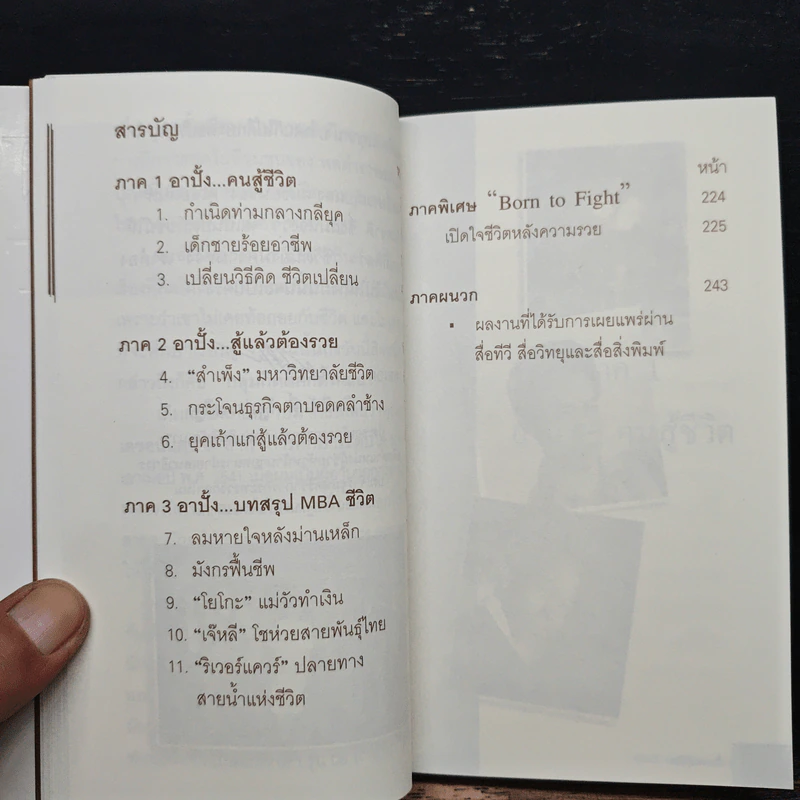 สารบัญ
ภาค 1 อาปั้ง...คนสู้ชีวิต
1. กำเนิดท่ามกลางกลียุค
2. เด็กชายร้อยอาชีพ
3. เปลี่ยนวิธีคิด ชีวิตเปลี่ยน
ภาค 2 อาปั้ง...สู้แล้วต้องรวย
4. “สำเพ็ง” มหาวิทยาลัยชีวิต
5. กระโจนธุรกิจตาบอดคลำช้าง
6. ยุคเถ้าแก่สู้แล้วต้องรวย
ภาค 3 อาปั้ง...บทสรุป MBA ชีวิต
7. ลมหายใจหลังม่านเหล็ก
8. มังกรฟื้นชีพ
9. “โยโกะ” แม่วัวทำเงิน
10. “เจ๊หลี” โชห่วยสายพันธุ์ไทย
11. “ริเวอร์แควร์” ปลายทาง
สายน้ำแห่งชีวิต
หน้า
ภาคพิเศษ “Born to Fight” 224
เปิดใจชีวิตหลังความรวย 225
ภาคผนวก 243
▪ ผลงานที่ได้รับการเผยแพร่ผ่าน
สื่อทีวี สื่อวิทยุและสื่อสิ่งพิมพ์